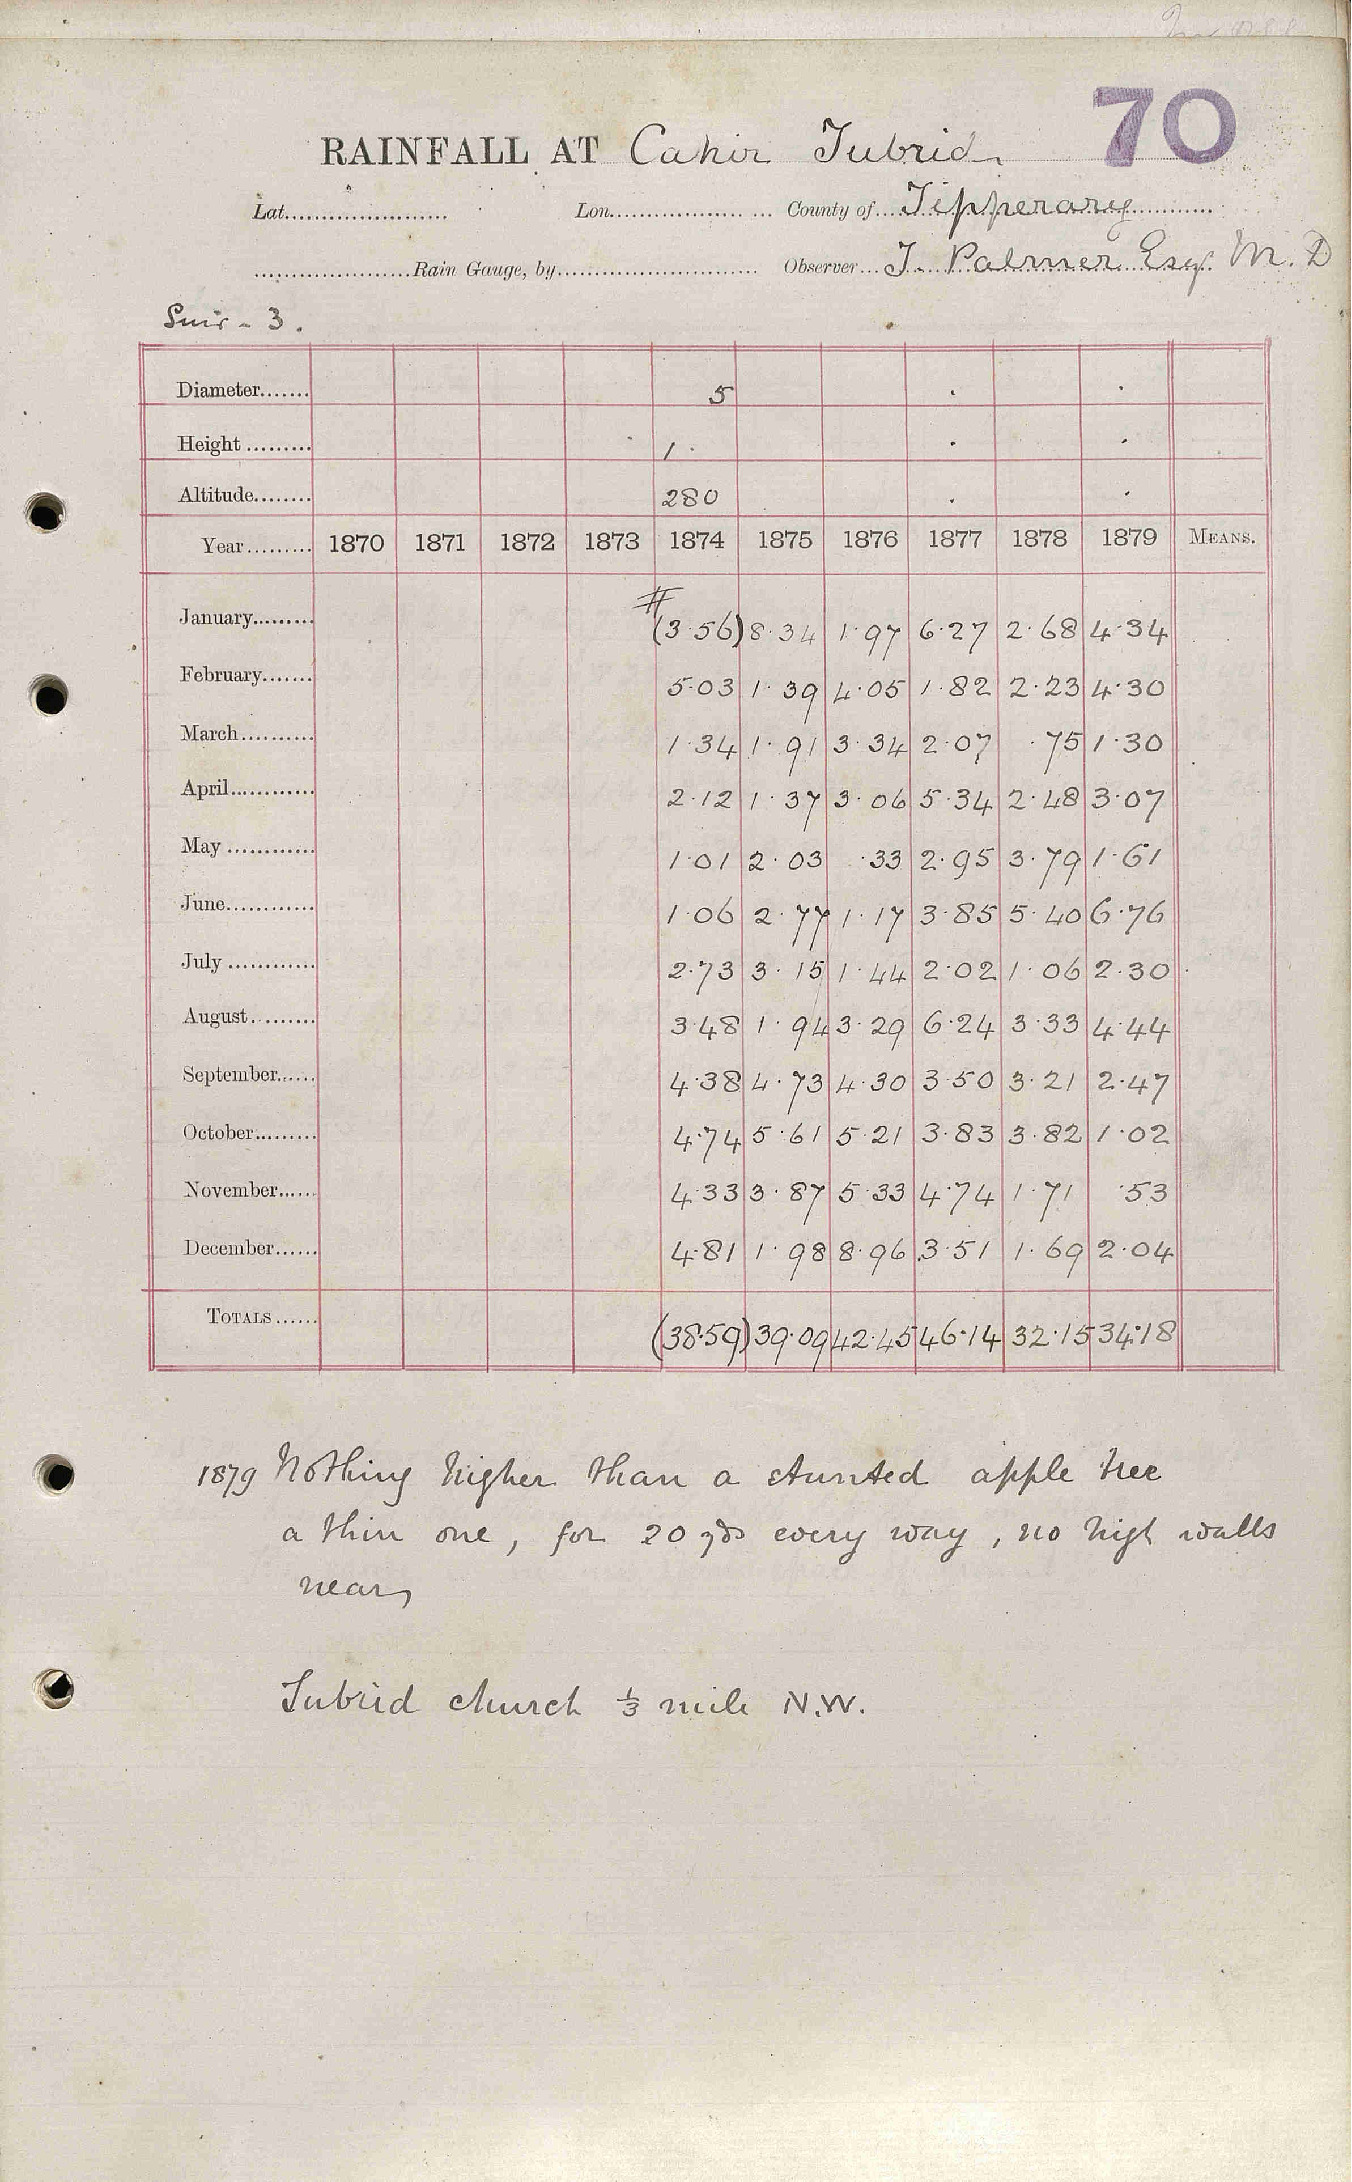 70
RAINFALL AT Cahir Tubrid
Lat. Lon. County of Tipperary
Rain Gauge, by Observer J. Palmer Esq. M.D
Suir - 3.
Diameter 5
Height 1.
Altitude 280
Year 1870 1871 1872 1873 1874 1875 1876 1877 1878 1879 MEANS.
January #(3.56) 8.34 1.97 6.27 2.68 4.34
February 5.03 1.39 4.05 1.82 2.23 4.30
March 1.34 1.91 3.34 2.07 .75 1.30
April 2.12 1.37 3.06 5.34 2.48 3.07
May 1.01 2.03 .33 2.95 3.79 1.61
June 1.06 2.77 1.17 3.85 5.40 6.76
July 2.73 3.15 1.44 2.02 1.06 2.30
August 3.48 1.94 3.29 6.24 3.33 4.44
September 4.38 4.73 4.30 3.50 3.21 2.47
October 4.74 5.61 5.21 3.83 3.82 1.02
November 4.33 3.87 5.33 4.74 1.71 .53
December 4.81 1.98 8.96 3.51 1.69 2.04
TOTALS (38.59) 39.09 42.45 46.14 32.15 34.18
1879 Nothing higher than a stunted apple tree
a thin one, for 20 yds every way, no high walls
near,
Tubrid church ⅓ mile N.W.